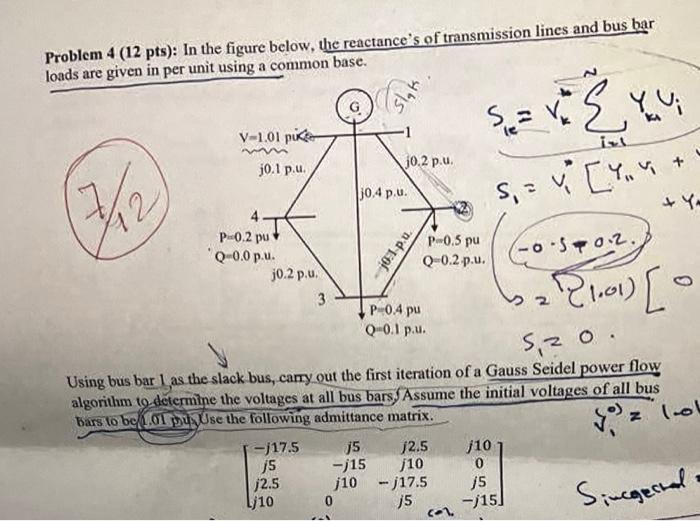 Problem 4 (12 pts): In the figure below, the reactance's of transmission lines and bus bar
loads are given in per unit using a common base.
G
Slak
V=1.01 pu
1
j0.1 p.u.
j0.2 p.u.
j0.4 p.u.
7/12
4
2
P=0.2 pu
Q=0.0 p.u.
P=0.5 pu
Q=0.2 p.u.
j0.1 p.u.
j0.2 p.u.
3
P=0.4 pu
Q=0.1 p.u.
-0.5+0.2
S₁ = 0.
Using bus bar 1 as the slack bus, carry out the first iteration of a Gauss Seidel power flow
algorithm to determine the voltages at all bus bars, Assume the initial voltages of all bus
bars to be 1.01 p.u. Use the following admittance matrix.
-j17.5 j5 j2.5 j10
j5 -j15 j10 0
j2.5 j10 -j17.5 j5
j10 0 j5 -j15